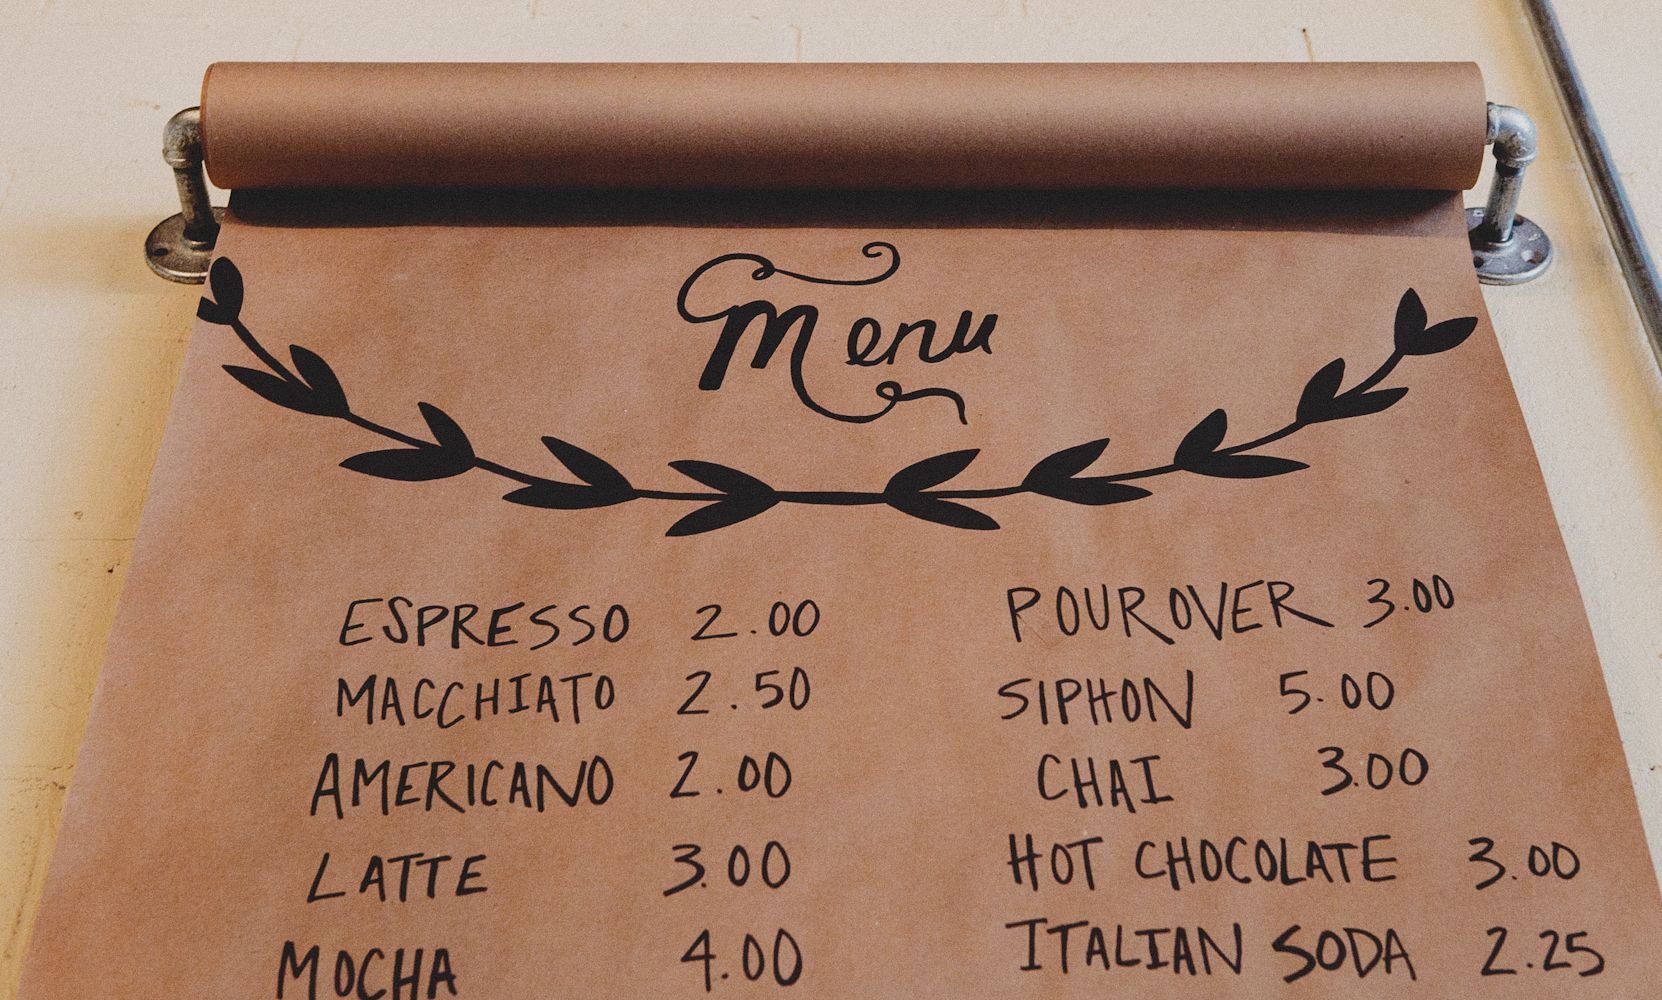 Menu
ESPRESSO 2.00
MACCHIATO 2.50
AMERICANO 2.00
LATTE 3.00
MOCHA 4.00
POUROVER 3.00
SIPHON 5.00
CHAI 3.00
HOT CHOCOLATE 3.00
ITALIAN SODA 2.25